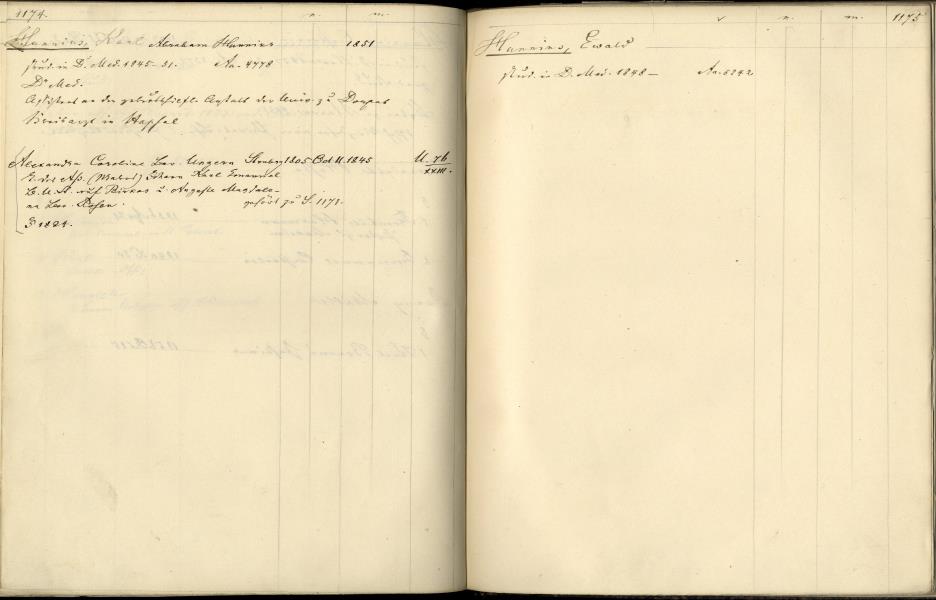 1174. n. m.
Hunnius, Karl Abraham Hunnius 1851
stud. in D. Med. 1845-51. An. 4778
Dr Med.
Assistent an der geburtshilfl. Anstalt der Univ. zu Dorpat
in Hapsal
Alexandra Caroline bar. Ungern Sternberg 1805 Oct 11. 1845 U. 76
XXIII.
Johann Karl Emanuel
B. U. S. auf u. Auguste Magdale-
na bar. Rosen. gehört zu S. 1173.
1824.
v. n. m. 1175
Hunnius, Ewald
stud. in D. Med. 1848- An. 5242